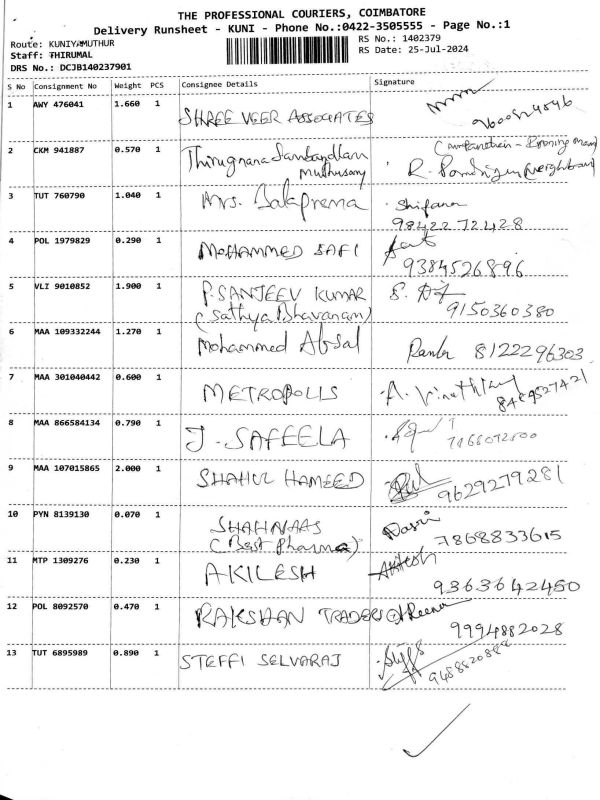 THE PROFESSIONAL COURIERS, COIMBATORE
Delivery Runsheet - KUNI - Phone No.:0422-3505555 - Page No.:1
Route: KUNIYAMUTHUR RS No.: 1402379
Staff: THIRUMAL RS Date: 25-Jul-2024
DRS No.: DCJB140237901
S No Consignment No Weight PCS Consignee Details Signature
1 AWY 476041 1.660 1 SHREE VEER ASSOCIATES
2 CKM 941887 0.570 1 Thirugnana Sambandham
Muthusamy
3 TUT 760790 1.040 1 Mrs. Balaprema Shifana
98422 72428
4 POL 1979829 0.290 1 MOHAMMED SAFI
9384526896
5 VLI 9010852 1.900 1 P. SANJEEV KUMAR
(Sathya Bhavanam) 9150360380
6 MAA 109332244 1.270 1 Mohammed Absal 8122296303
7 MAA 301040442 0.600 1 METROPOLIS
8 MAA 866584134 0.790 1 J. SAFEELA
9 MAA 107015865 2.000 1 SHAHUL HAMEED
9629279281
10 PYN 8139130 0.070 1 SHAHNAAS
(Best Pharma) 7868833615
11 MTP 1309276 0.230 1 AKILESH Akilesh
9363642450
12 POL 8092570 0.470 1 RAKSHAN TRADERS
9994882028
13 TUT 6895989 0.890 1 STEFFI SELVARAJ